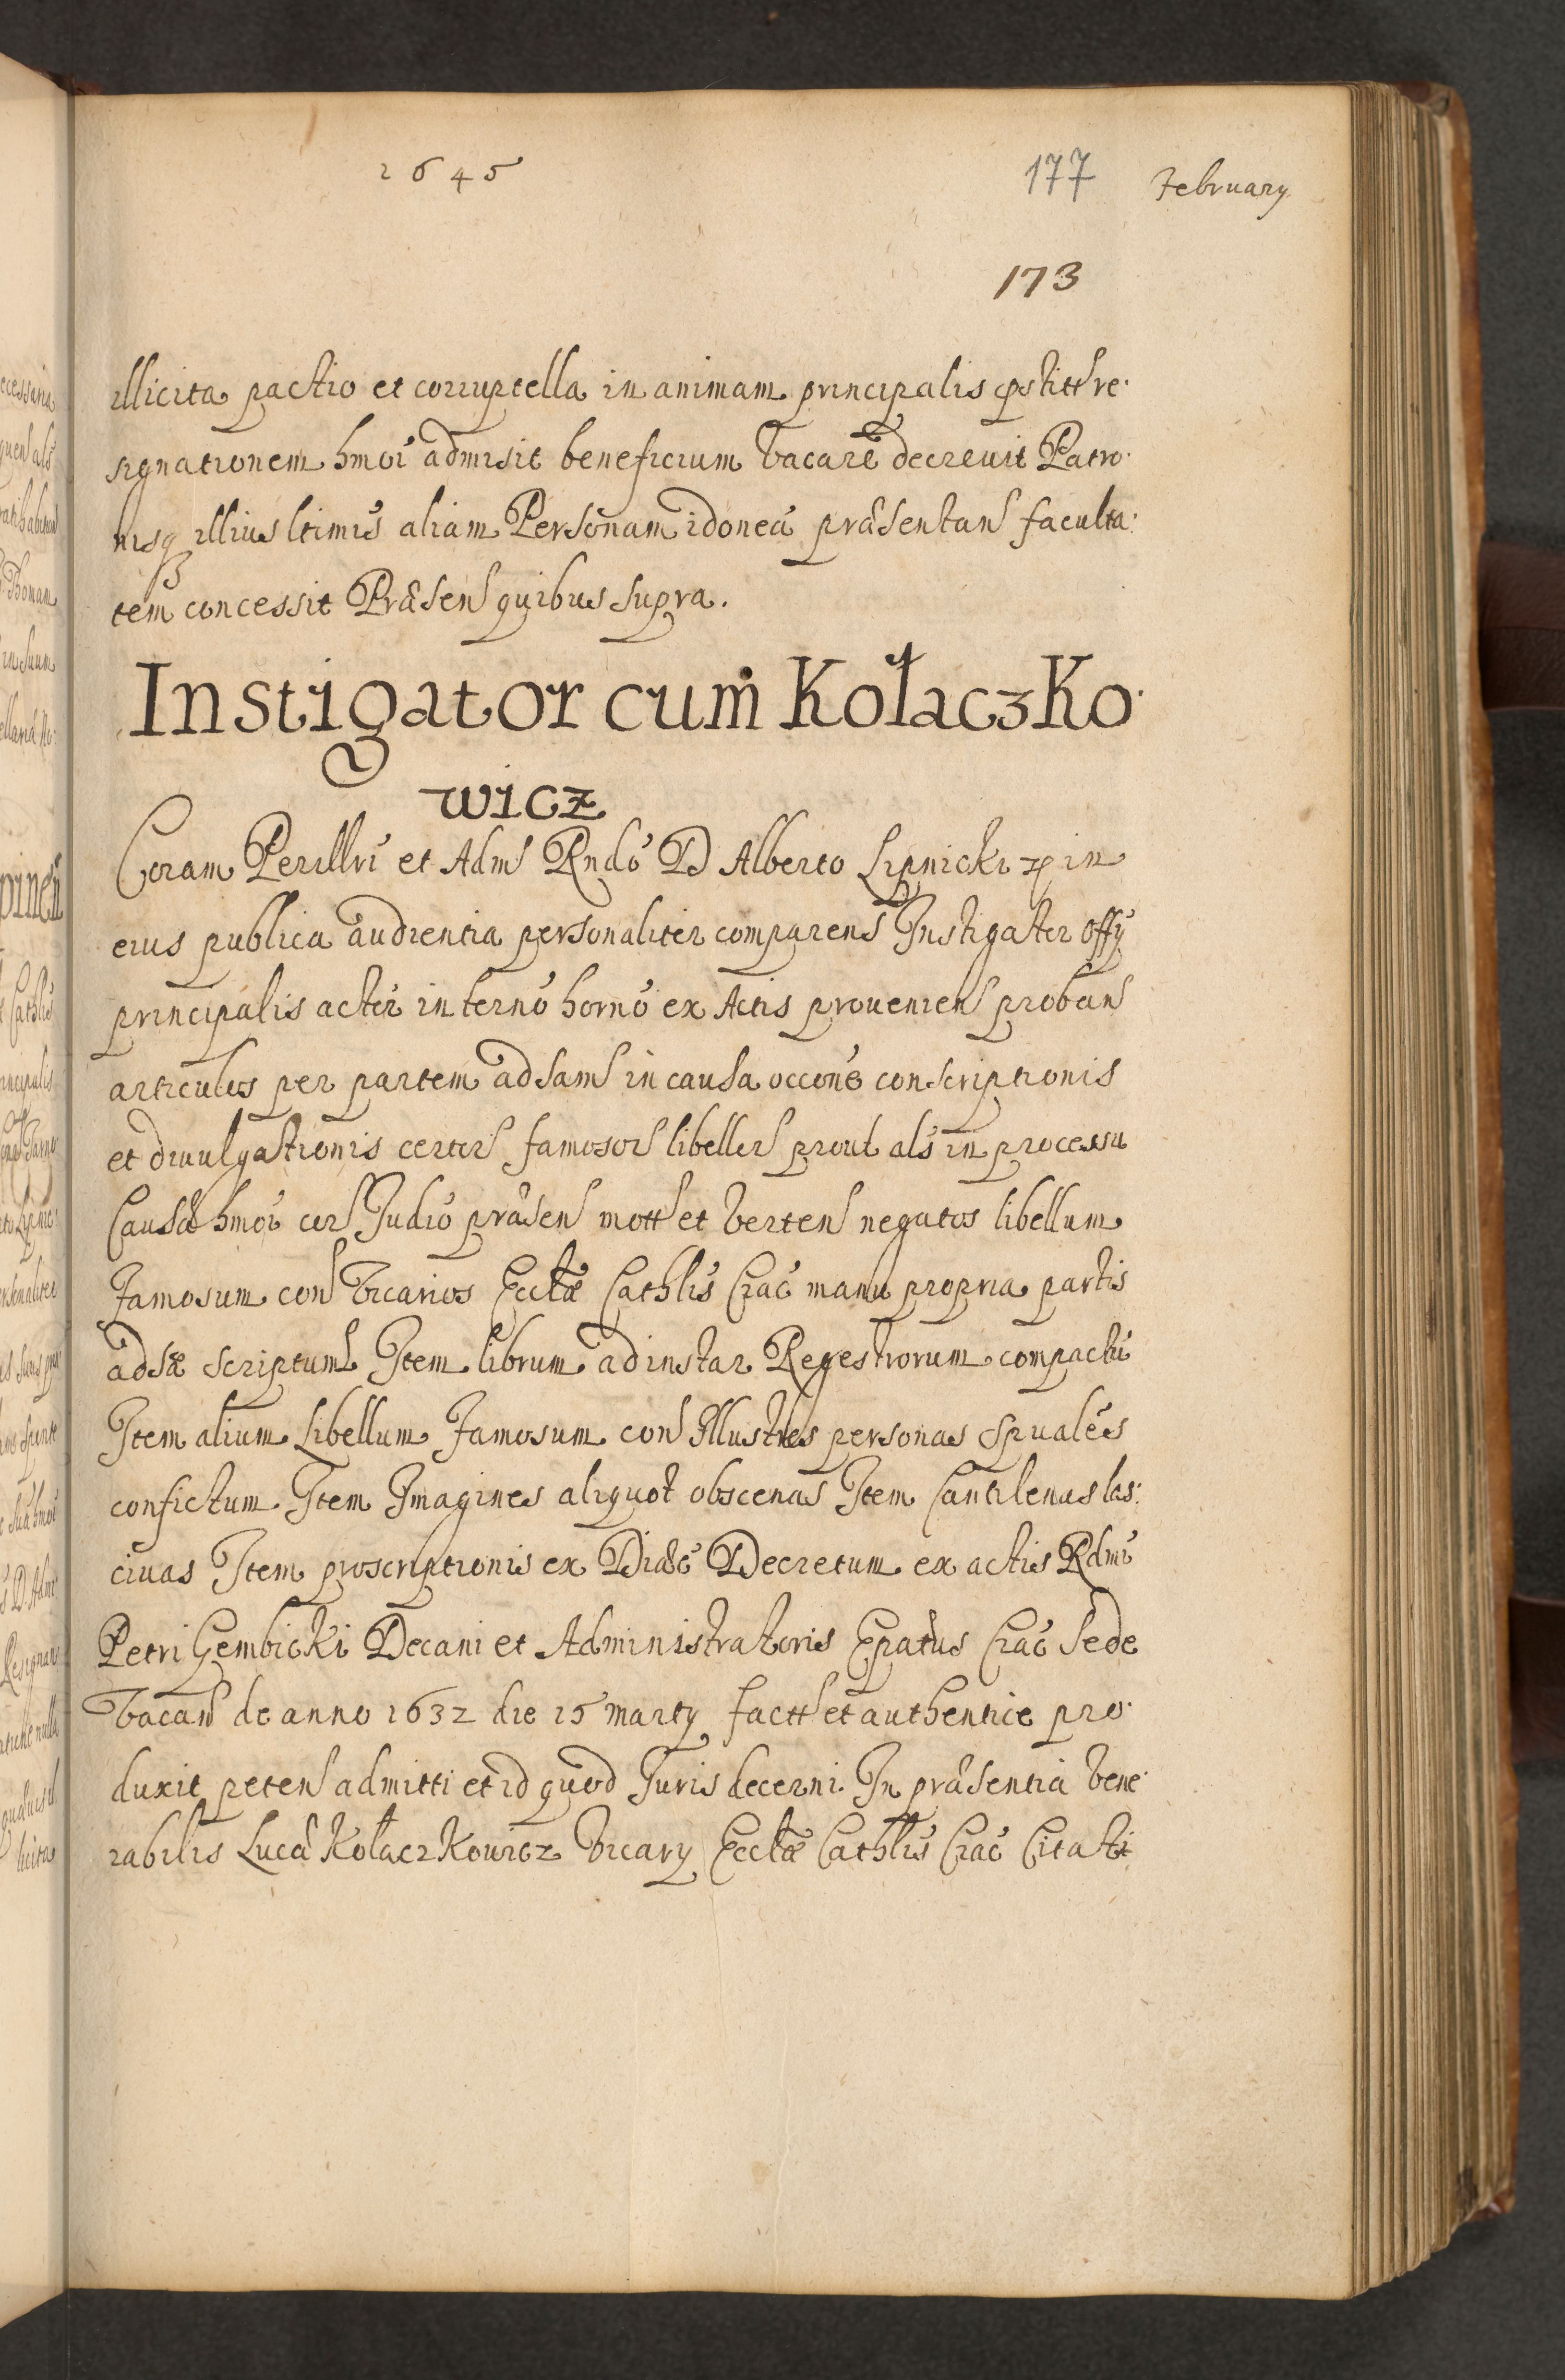 1645 177 February
173
illicita pactio et corruptella in animam principalis pstitt re-
signationem hmoi admisit beneficium vacare decrevit Patro-
nisq illius ltimis aliam Personam idonea præsentan faculta-
tem concessit Præsen quibus supra.
Instigator cum Kołaczko-
wicz
Coram Perillri et Adm Rndo D Alberto Lipnicki in
eius publica audientia personaliter comparens Instigator Offy
principalis actor in terno horno ex Actis provenien proban
articulos per partem adsam in causa occone conscriptionis
et divulgationis certor famosor libellor prout als in processu
Causæ hmoi cor Judio præsen mott et verten negatos libellum
Famosum con Vicarios Ecclæ Cathlis Crac manu propria partis
adsæ scriptum Item librum ad instar Regestrorum compactu
Item alium Libellum Famosum con Illustres personas Spuales
confictum Item Imagines aliquot obscenas Item Cantilenas las-
civas Item proscriptionis ex Diæc Decretum ex actis Rdmi
Petri Gembicki Decani et Administratoris Epatus Crac Sede
Vacan de anno 1632 die 15 marty factt et authentice pro-
duxit peten admitti et id quod Juris decerni In præsentia Vene-
rabilis Lucæ Kołaczkowicz Vicary Ecclæ Cathlis Crac Citati